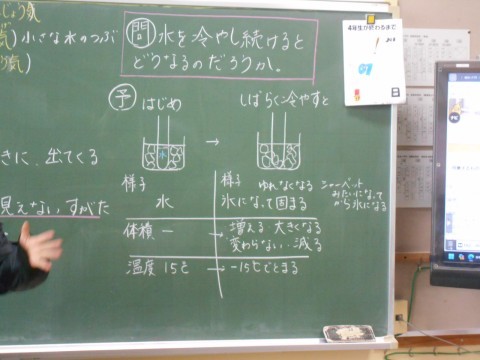 小さな水のつぶ
問 水を冷やし続けると
どうなるのだろうか。
4年生が終わるまで
日
予 はじめ → しばらく冷やすと
水
きに、出てくる
見えない すがた
様子 水
様子 ゆれなくなる
氷になって固まる
シャーベット
みたいになって
から氷になる
体積 ー → 増える・大きくなる
変わらない・減る
温度 15℃ → -15℃でとまる